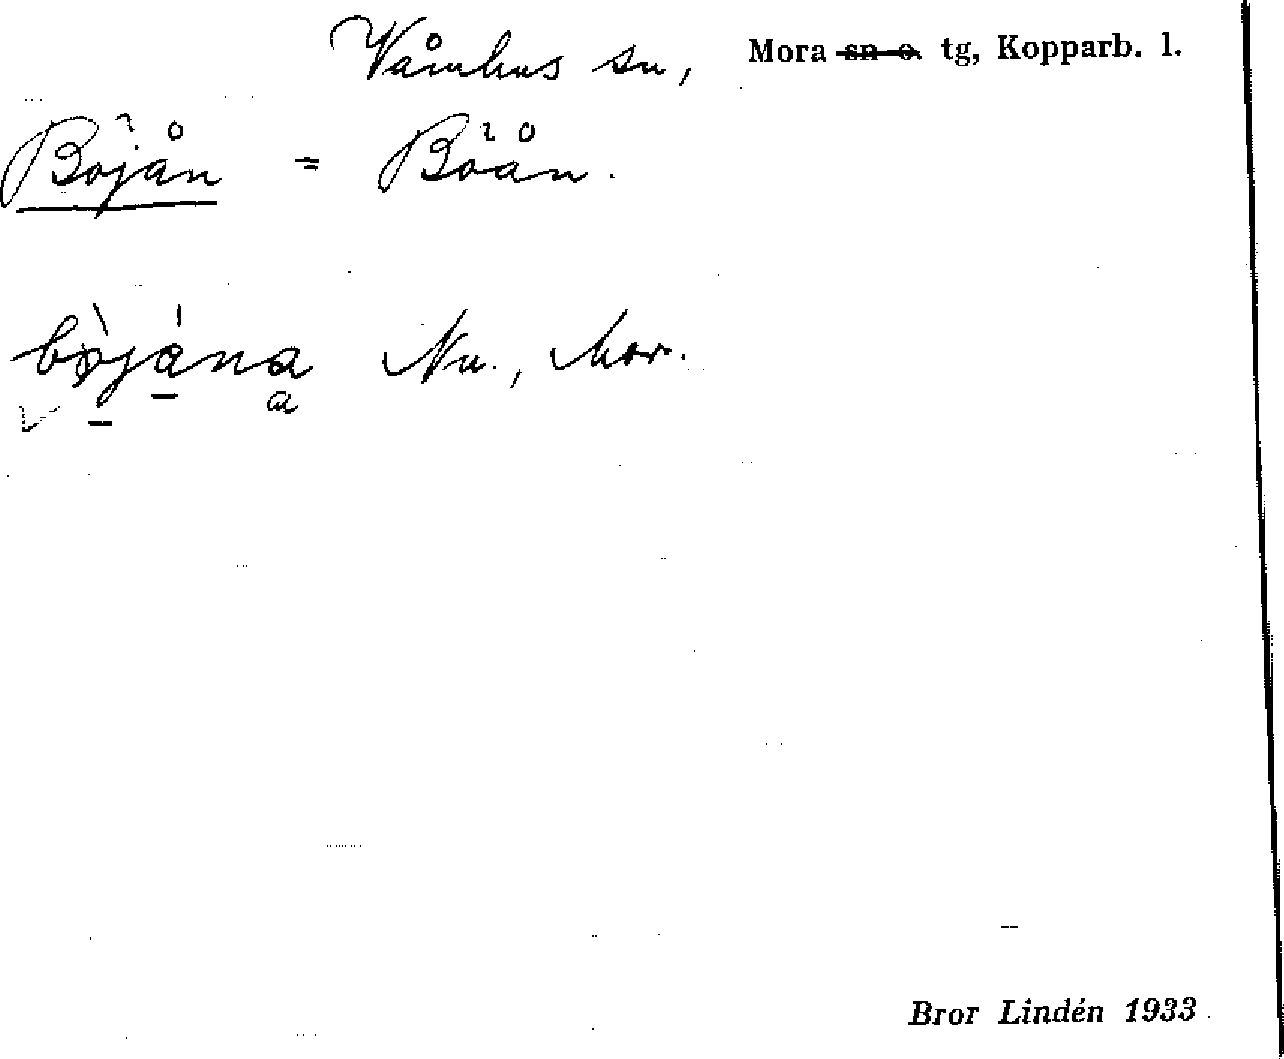 Våmhus sn, Mora ~~sn o.~~ tg, Kopparb. l.
Böjån = Böån.
Nu., Mor.
Bror Lindén 1933